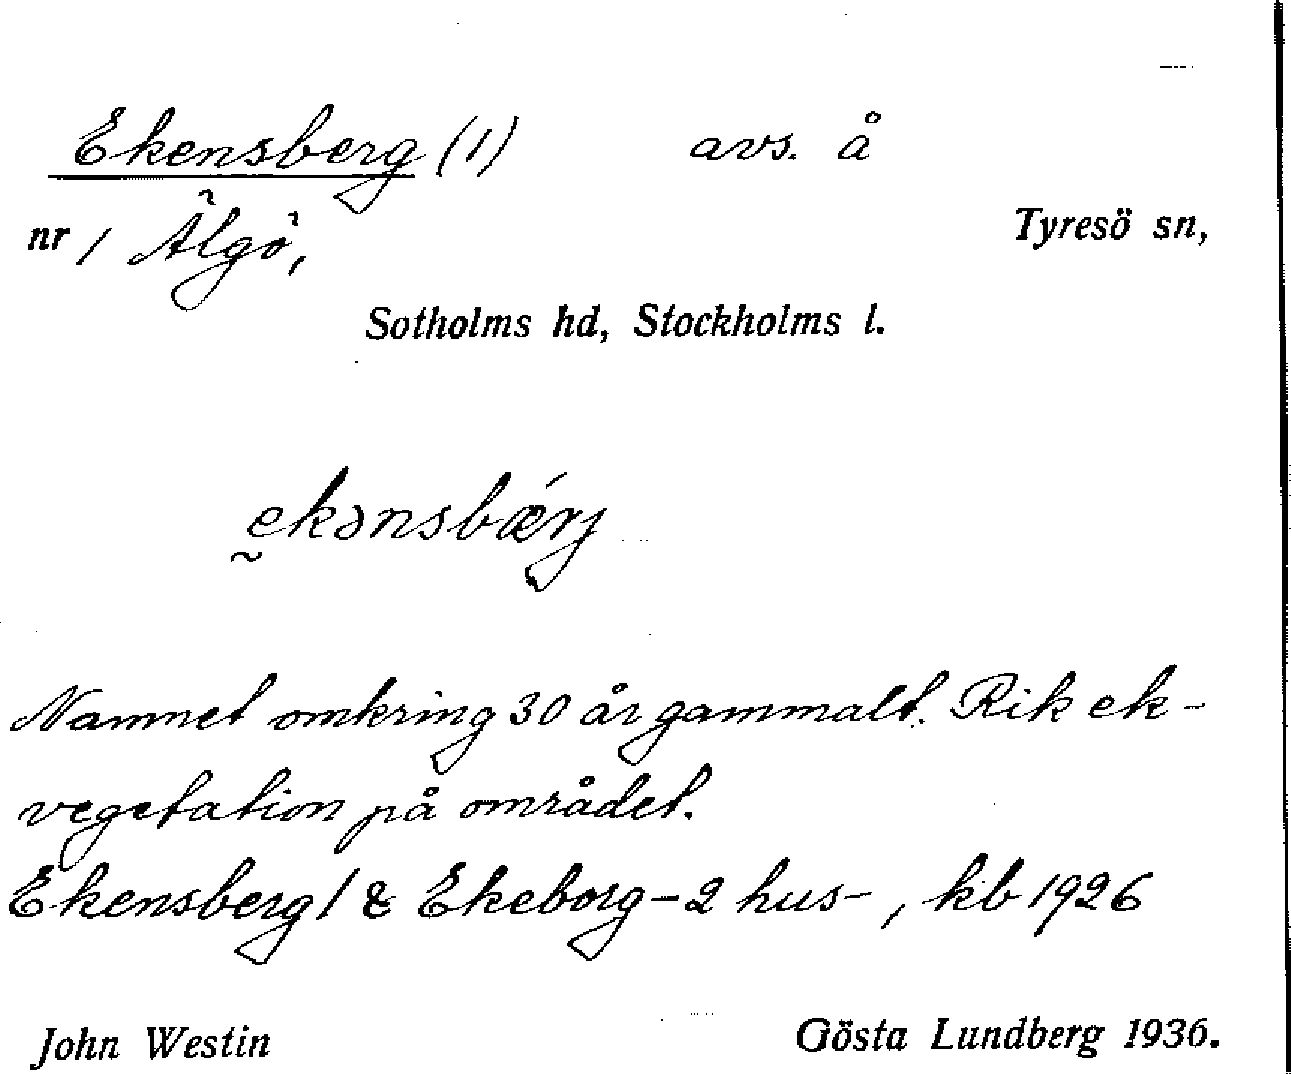 Ekensberg (1) avs. å
nr 1 Älgö, Tyresö sn,
Sotholms hd, Stockholms l.
ekənsbǽrj
Namnet omkring 30 år gammalt. Rik ek-
vegetation på området.
Ekensberg 1 & Ekeborg – 2 hus – , kb 1926
John Westin Gösta Lundberg 1936.